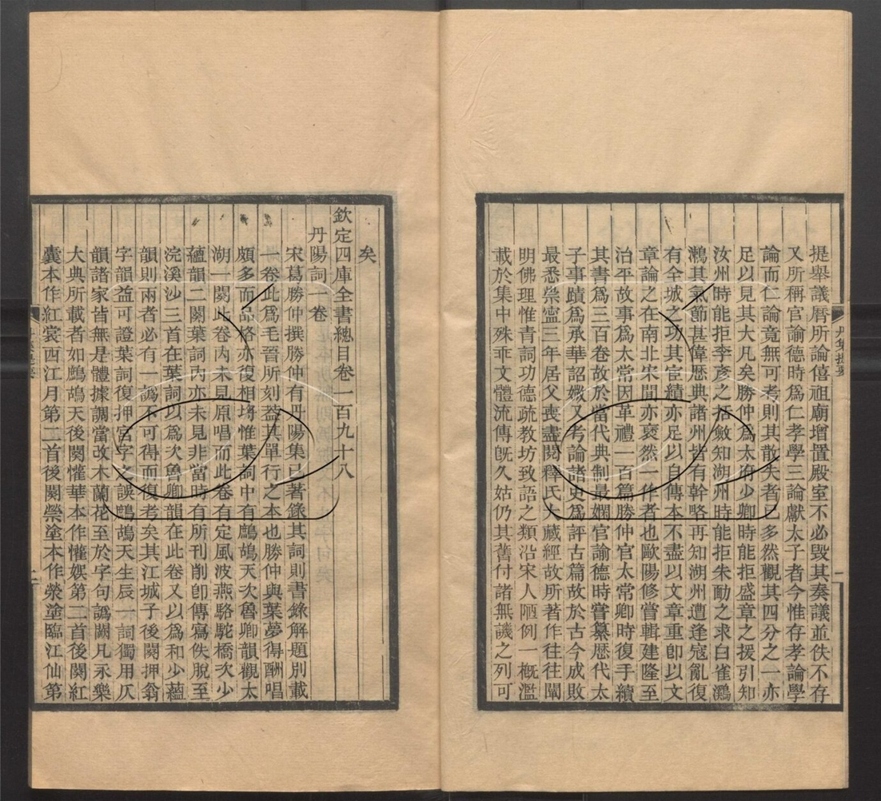 提舉議曆所論僖祖廟增置殿室不必毀其奏議並佚不存
又所稱官諭德時爲仁孝學三論獻太子者今惟存孝論學
論而仁論竟無可考則其散夫者已多然觀其四分之一亦
足以見其大凡矣勝仲爲太府少卿時能拒盛章之援引知
汝州時能拒李彥之括斂知湖州時能拒朱勔之求白雀鸂
鶒其氣節甚偉歷典諸州皆有幹略再知湖州遭逢寇亂復
有全城之功其宦績亦足以自傳本不盡以文章重卽以文
章論之在南北宋間亦裒然一作者也歐陽修嘗輯建隆至
治平故事爲太常因革禮一百篇勝仲官太常卿時復手續
其書爲三百卷故於當代典制最嫺官諭德時嘗纂歷代太
子事蹟爲承華詔嫩又考論諸史爲評古篇故於古今成敗
最悉崇寧三年居父喪盡閱釋氏大藏經故所著作往往闡
明佛理惟青詞功德疏教坊致語之類沿宋人陋例一概濫
載於集中殊乖文體流傳旣久姑仍其舊付諸無譏之列可
矣
欽定四庫全書總目卷一百九十八
丹陽詞一卷
宋葛勝仲撰勝仲有丹陽集已著錄其詞則書錄解題別載
一卷此爲毛晉所刻蓋其單行之本也勝仲與葉夢得酬唱
頗多而品格亦復相埒惟葉詞中有鷓鴣天次魯卿韻觀太
湖一闋此卷內未見原唱而此卷有定風波燕駱駝橋次少
蘊韻二闋葉詞內亦未見非當時有所刊削卽傳寫佚脫至
浣溪沙三首在葉詞以爲次魯卿韻在此卷又以爲和少蘊
韻則兩者必有一譌不可得而復考矣其江城子後闋押翁
字韻益可證葉詞復押宮字之誤鷓鴣天生辰一詞獨用仄
韻諸家皆無是體據調當改木蘭花至於字句譌闕凡永樂
大典所載者如鷓鴣天後闋懽華本作懽娛第二首後闋紅
囊本作紅裳西江月第二首後闋縈塗本作榮塗臨江仙第